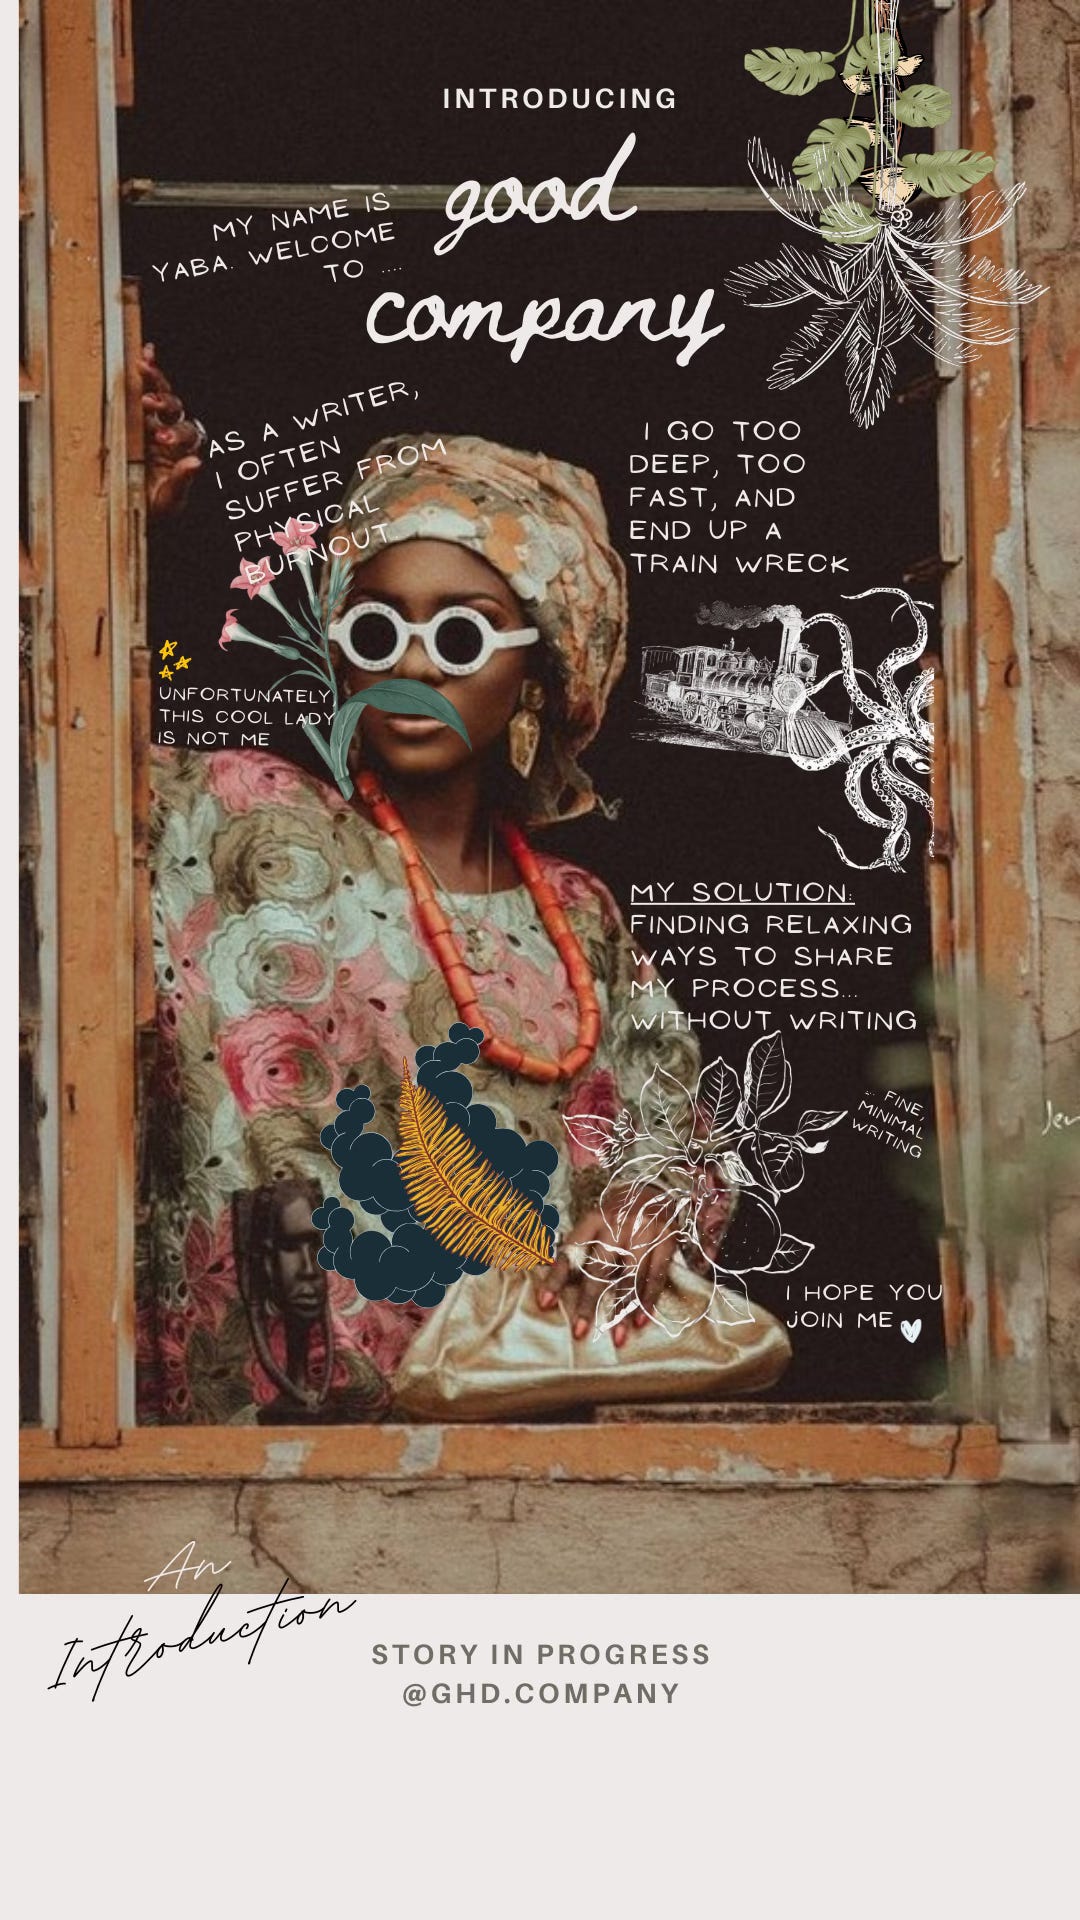 INTRODUCING
good
company
MY NAME IS
YABA. WELCOME
TO ....
AS A WRITER,
I OFTEN
SUFFER FROM
PHYSICAL
BURNOUT.
I GO TOO
DEEP, TOO
FAST, AND
END UP A
TRAIN WRECK
UNFORTUNATELY,
THIS COOL LADY
IS NOT ME
MY SOLUTION:
FINDING RELAXING
WAYS TO SHARE
MY PROCESS...
WITHOUT WRITING
... FINE,
MINIMAL
WRITING
I HOPE YOU
JOIN ME
An
Introduction
STORY IN PROGRESS
@GHD.COMPANY